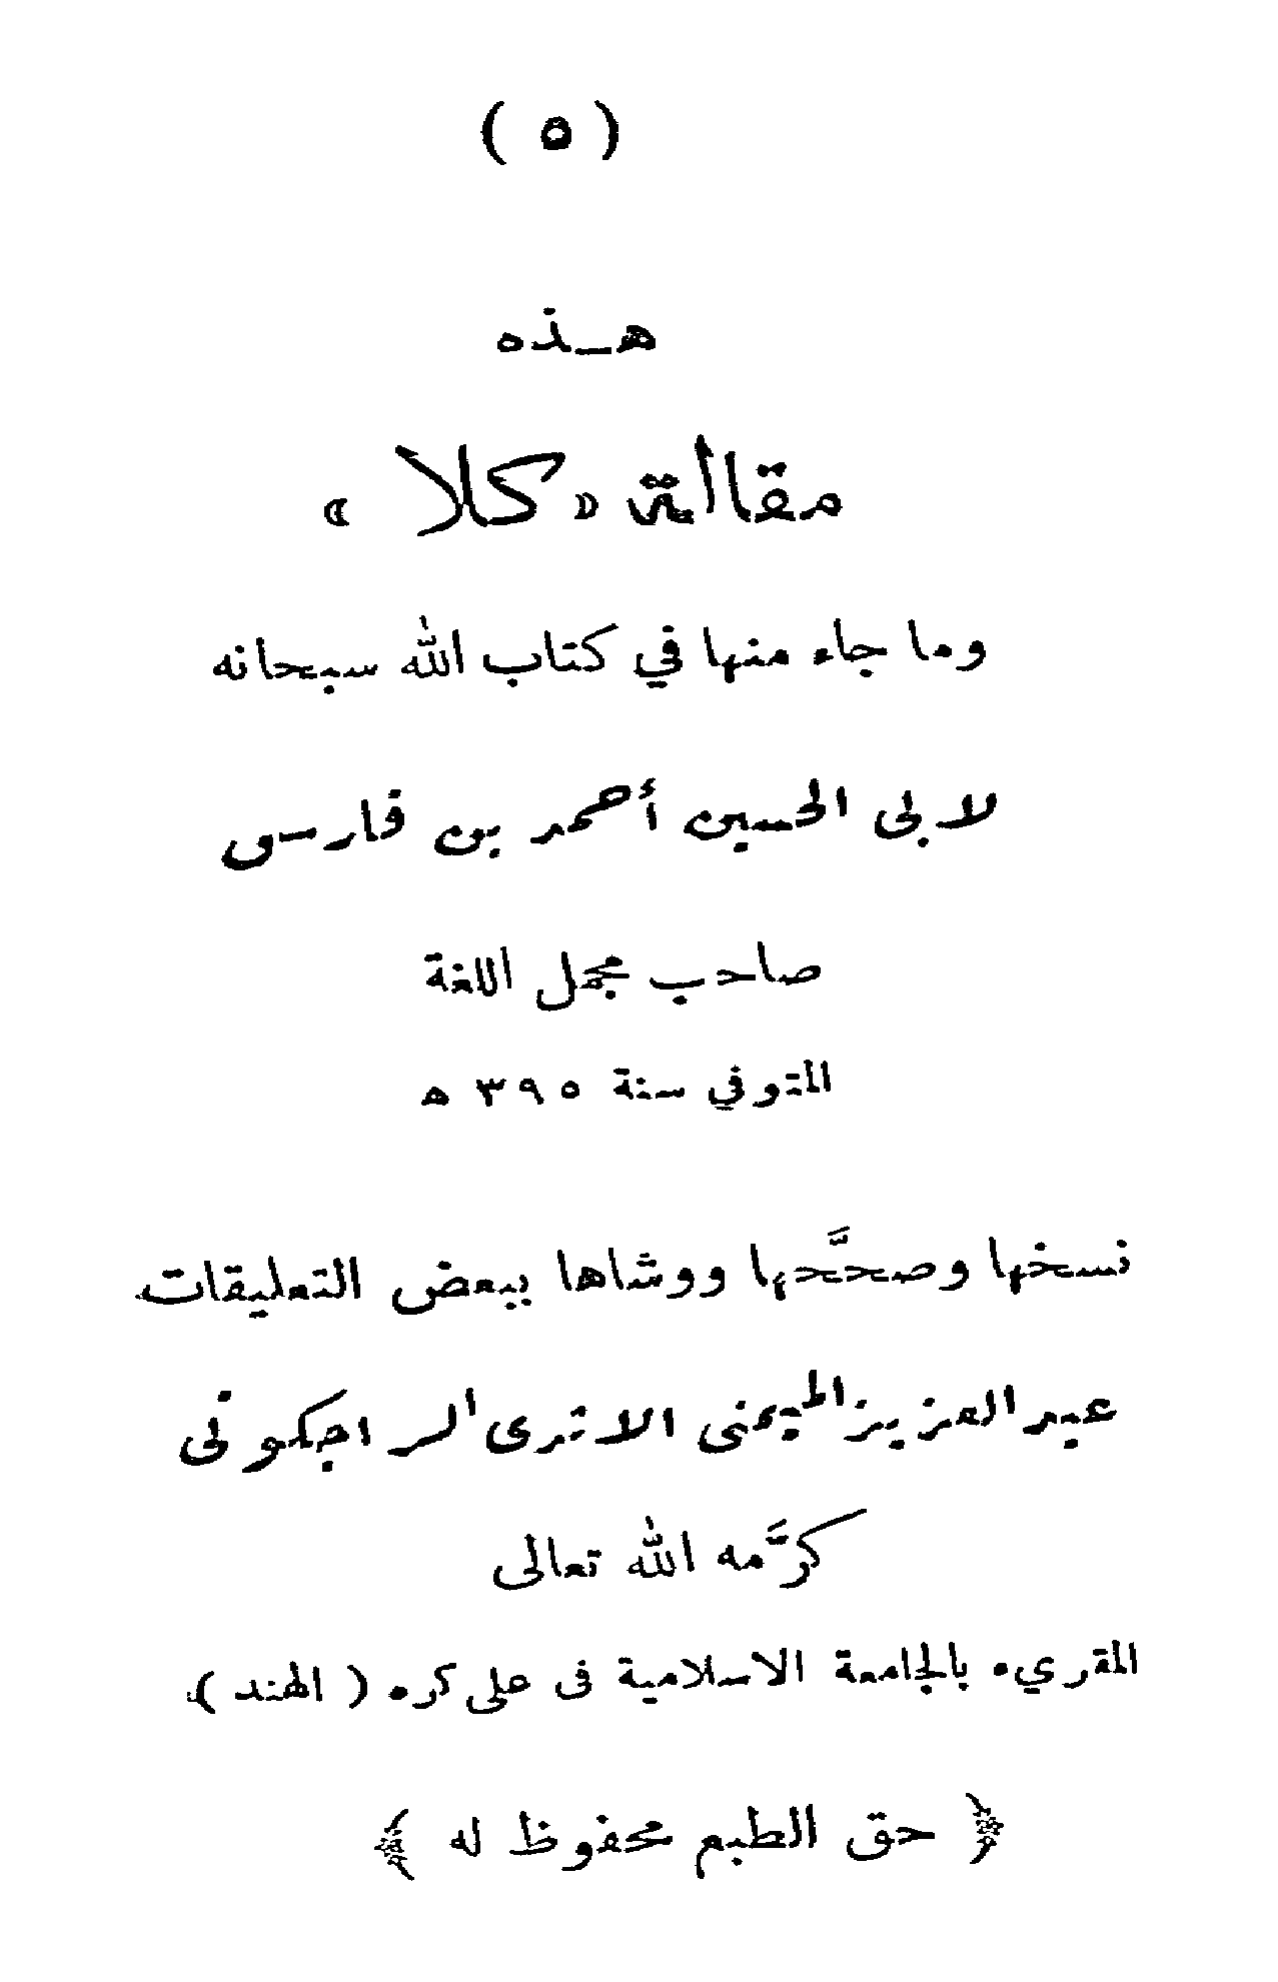 ( ٥ )
هـذه
مقالة «كلا»
وما جاء منها في كتاب الله سبحانه
لابى الحسين أحمد بن فارسى
صاحب مجمل اللغة
المتوفي سنة ٣٩٥ ه
نسخها وصحَّحها ووشاها ببعض التعليقات
عبد العزيز الميمنى الاثرى الراجكوتى
كرَّمه الله تعالى
المقريء بالجامعة الاسلامية فى على كره ( الهند )
﴿ حق الطبع محفوظ له ﴾